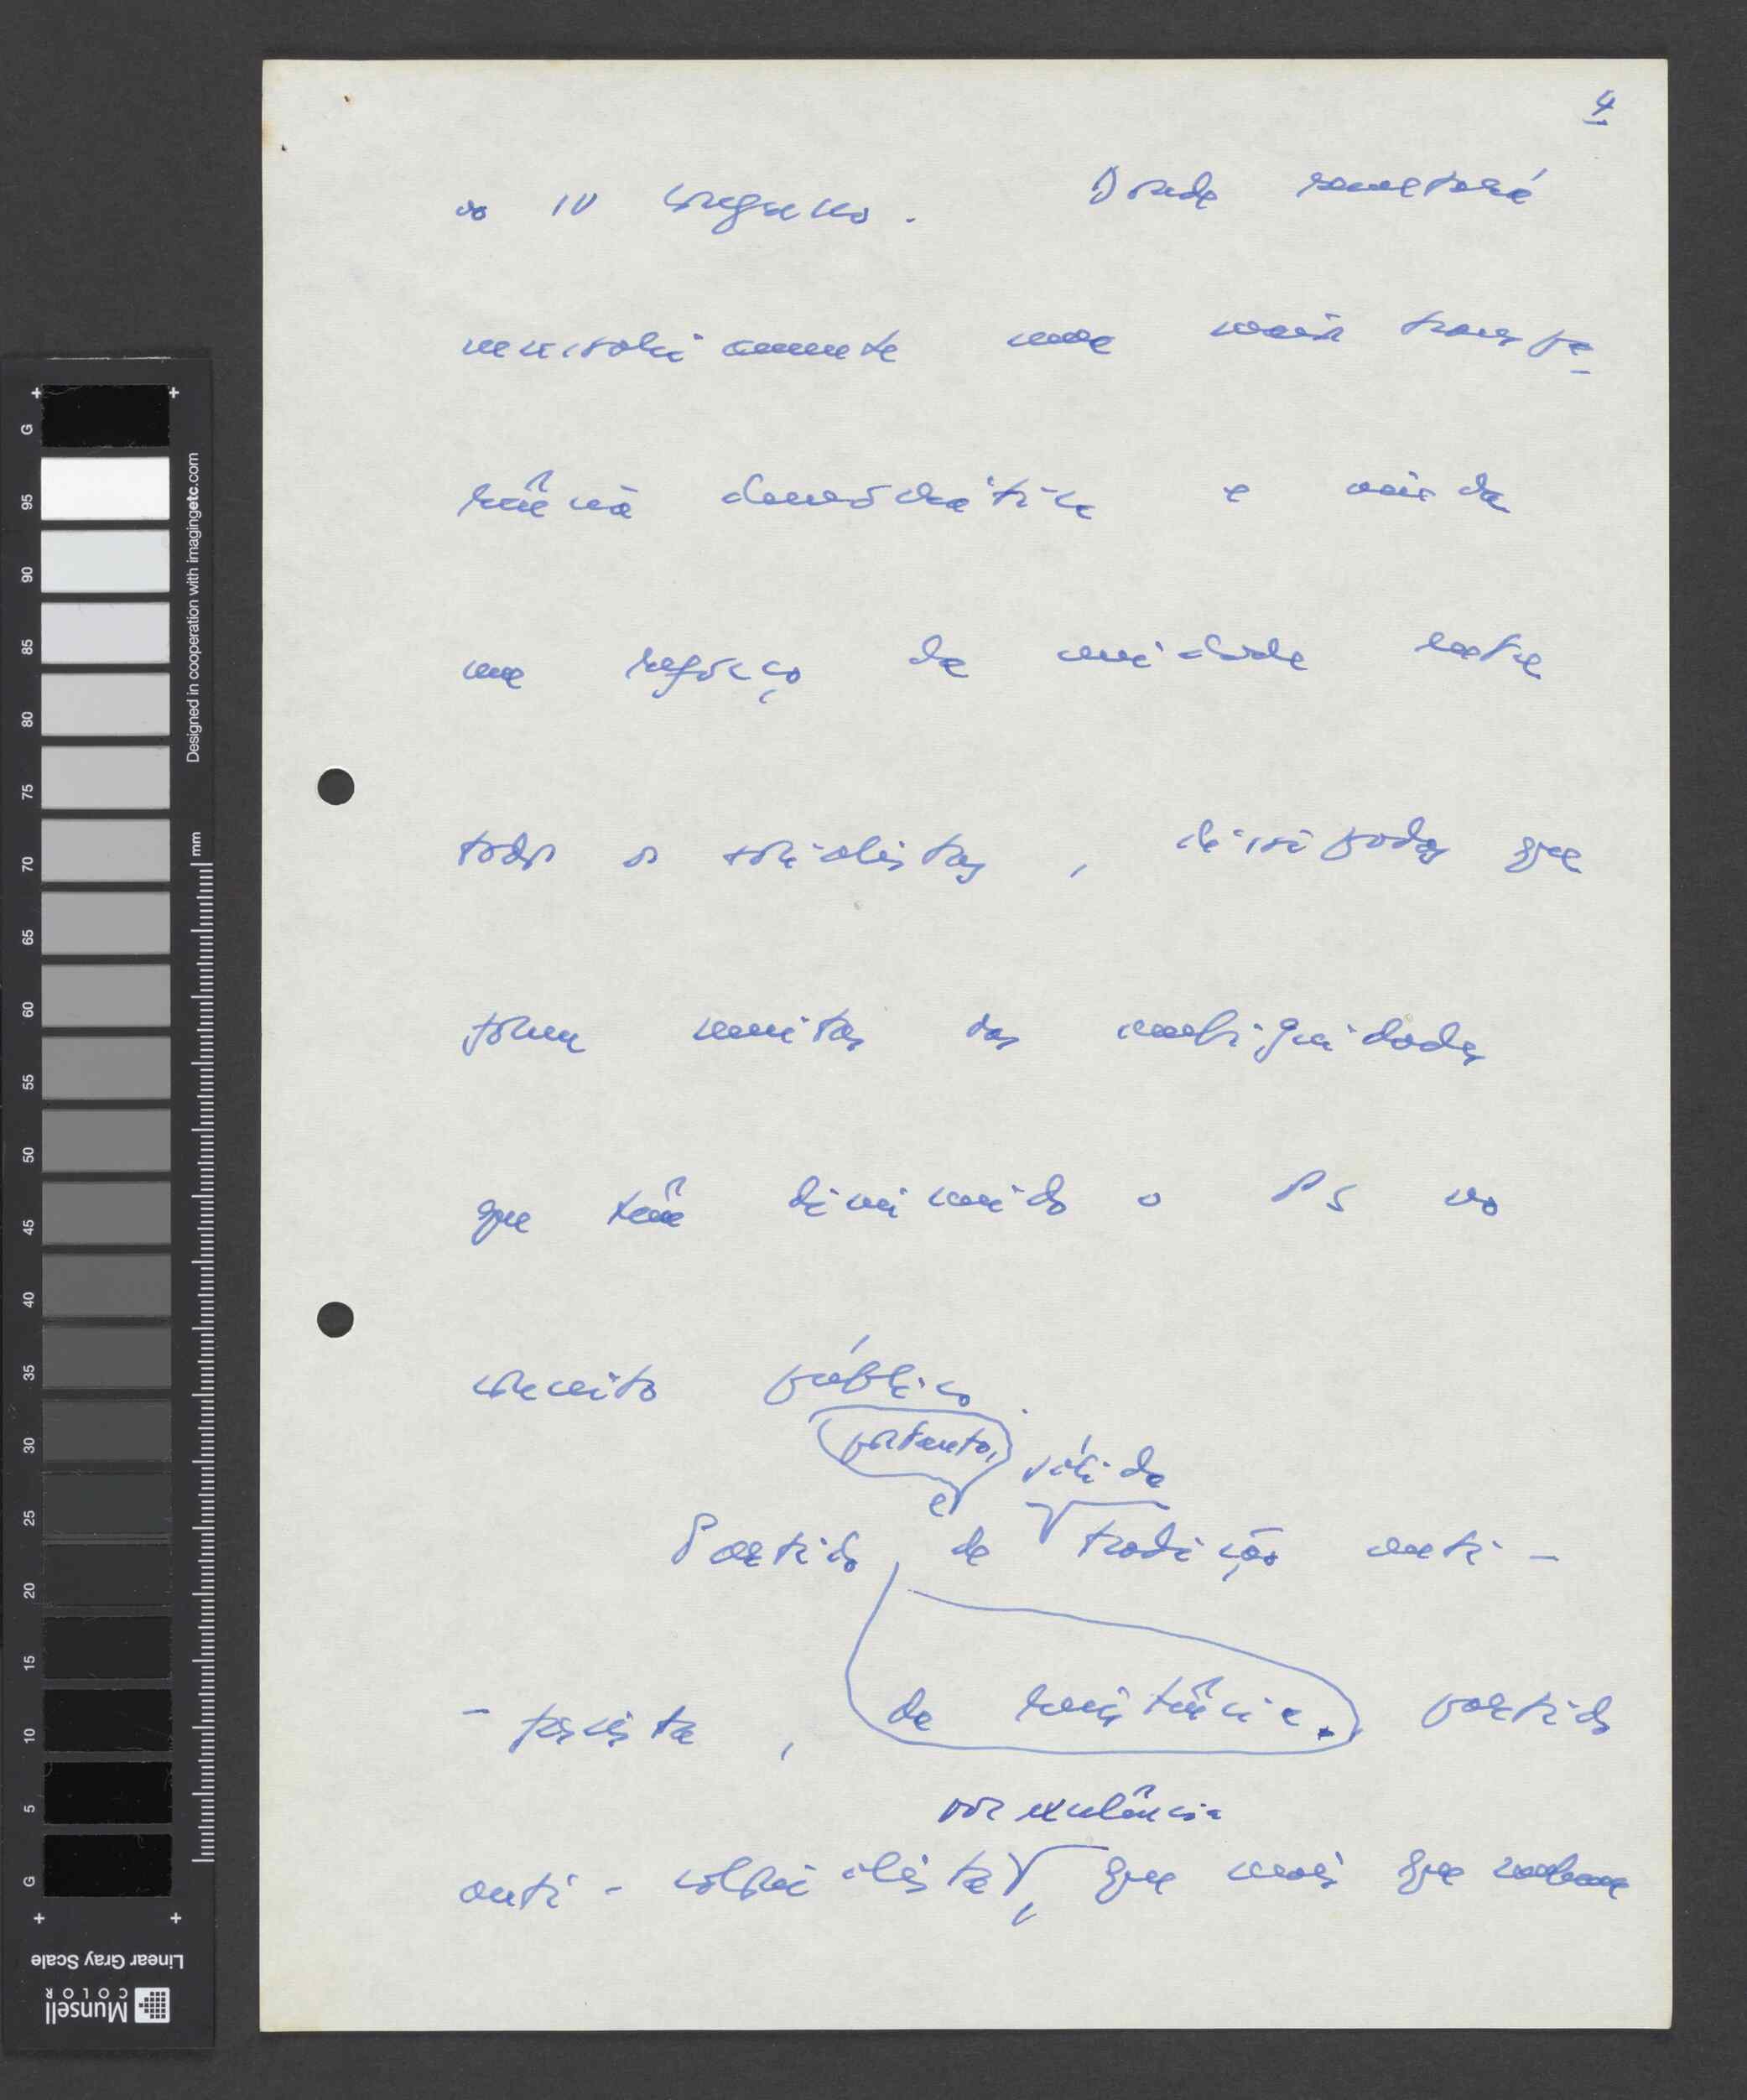 4
no IV Congresso. Donde resultará
necessariamente uma maior transpa
rência democrática e ainda
um reforço da unidade entre
todos os socialistas, dissipadas que
forem muitas das ambiguidades
que têm diminuído o PS no
conceito público.
portanto,
e sólida
Partido, de tradição anti-
-fascista, de resistência, partido
por excelência
anti-colonialista, que mais que nenhum
G
95
90
85
80
75
70
65
60
55
50
45
40
35
30
25
20
15
10
5
G
Designed in cooperation with imagingetc.com
mm
Linear Gray Scale
Munsell
COLOR